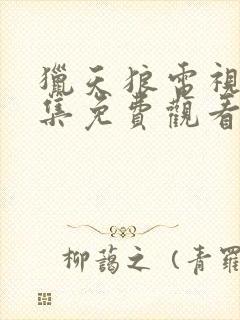 獵天狼電視
集免費觀看
柳藹之（青羅